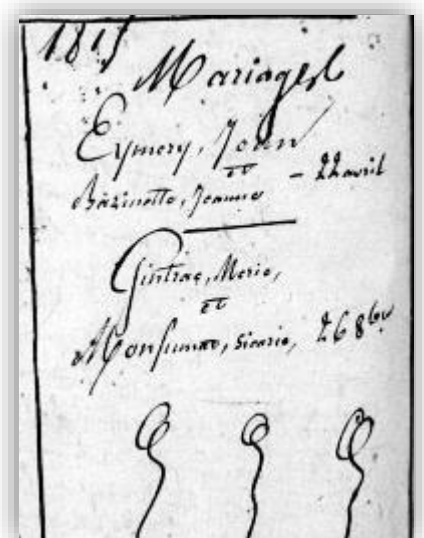 1815
Mariages
Eymery, Jean
et
Bazinette, Jeanne - 22 avril
Gintrac, Merie,
et
Monfumat, Sicarie, 26 8bre